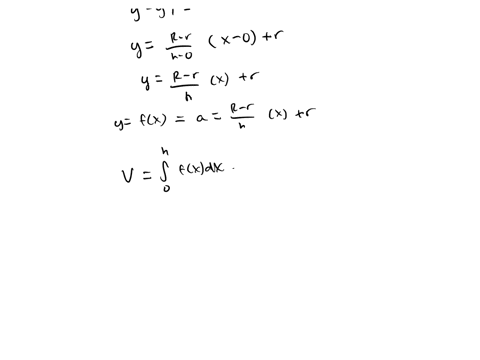 y = \frac{R-r}{h-0} (x-0) + r
y = \frac{R-r}{h} (x) + r
y = f(x) = a = \frac{R-r}{h} (x) + r
V = \int_{0}^{h} f(x)dx.